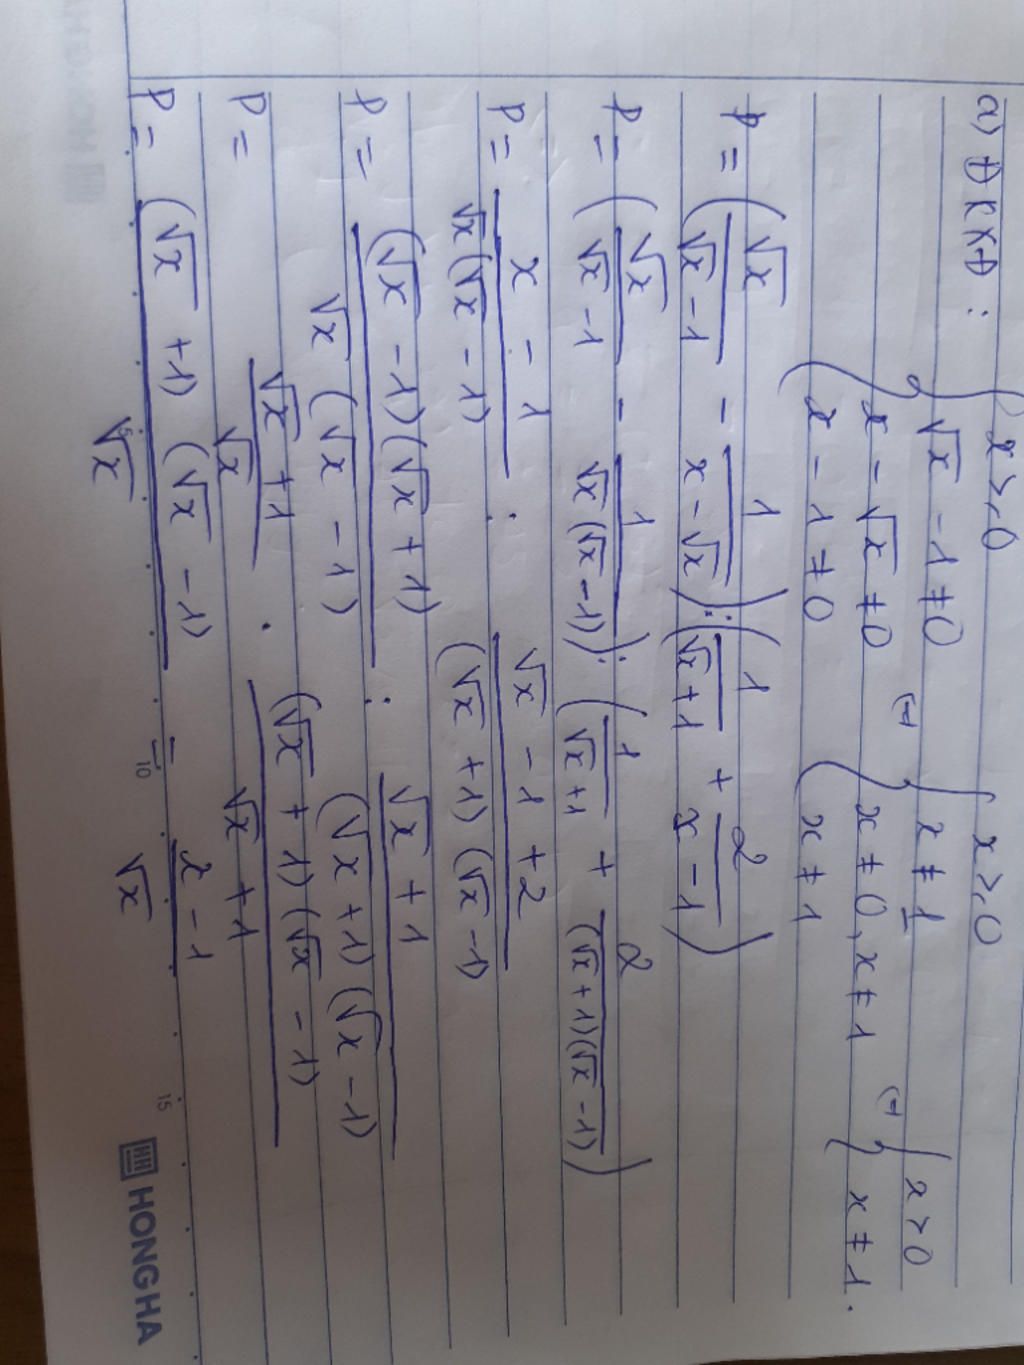 a) ĐKXĐ: { x ≥ 0 { x ≥ 0
√x - 1 ≠ 0 (=) x ≠ 1 (=) { x > 0
x - √x ≠ 0 x ≠ 0, x ≠ 1 x ≠ 1.
x - 1 ≠ 0 x ≠ 1
P = (√x/(√x - 1) - 1/(x - √x)) : (1/(√x + 1) + 2/(x - 1))
P = (√x/(√x - 1) - 1/(√x(√x - 1))) : (1/(√x + 1) + 2/((√x + 1)(√x - 1)))
P = (x - 1)/(√x(√x - 1)) : (√x - 1 + 2)/((√x + 1)(√x - 1))
P = ((√x - 1)(√x + 1))/(√x(√x - 1)) : (√x + 1)/((√x + 1)(√x - 1))
P = (√x + 1)/√x . ((√x + 1)(√x - 1))/(√x + 1)
P = ((√x + 1)(√x - 1))/√x = (x - 1)/√x
5 10 15
HH HONG HA